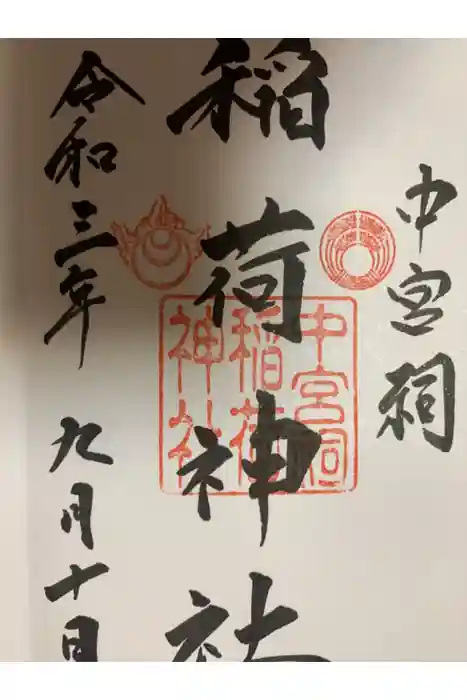 中宮祠
稲荷神社
令和三年 九月十日
中宮祠
稲荷
神社